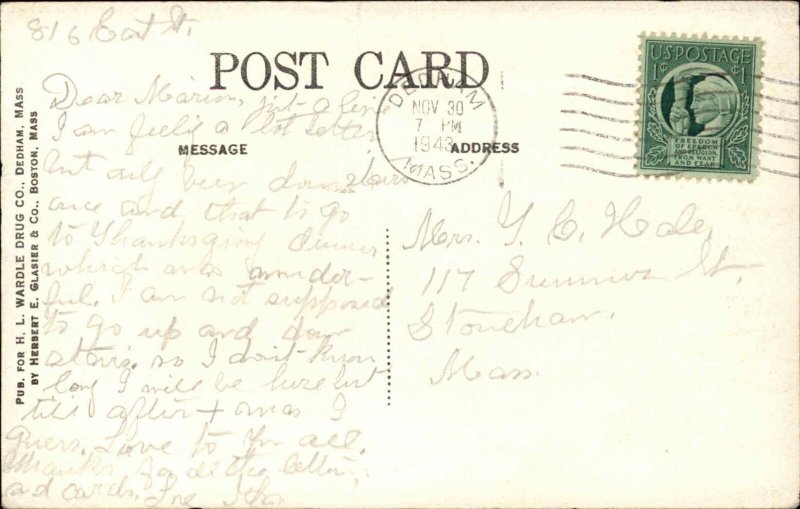 816 East St.
POST CARD
Dear Marion, just a line
I am feeling a lot better
MESSAGE
but only been down stairs
once and that to go
to Thanksgiving dinner
which was wonder-
ful. I am not supposed
to go up and down
stairs. so I don't know
long I will be here but
till after Xmas I
guess. Love to you all.
Thanks for all the letters
and cards.
DEDHAM
NOV 30
7 PM
1943
MASS.
ADDRESS
U.S. POSTAGE
1¢ ¢1
FREEDOM
OF SPEECH
AND RELIGION,
FROM WANT
AND FEAR
Mrs. Y. C. Hale,
117 Summer St.
Stoneham.
Mass.
PUB. FOR H. L. WARDLE DRUG CO., DEDHAM, MASS
BY HERBERT E. GLASIER & CO., BOSTON, MASS